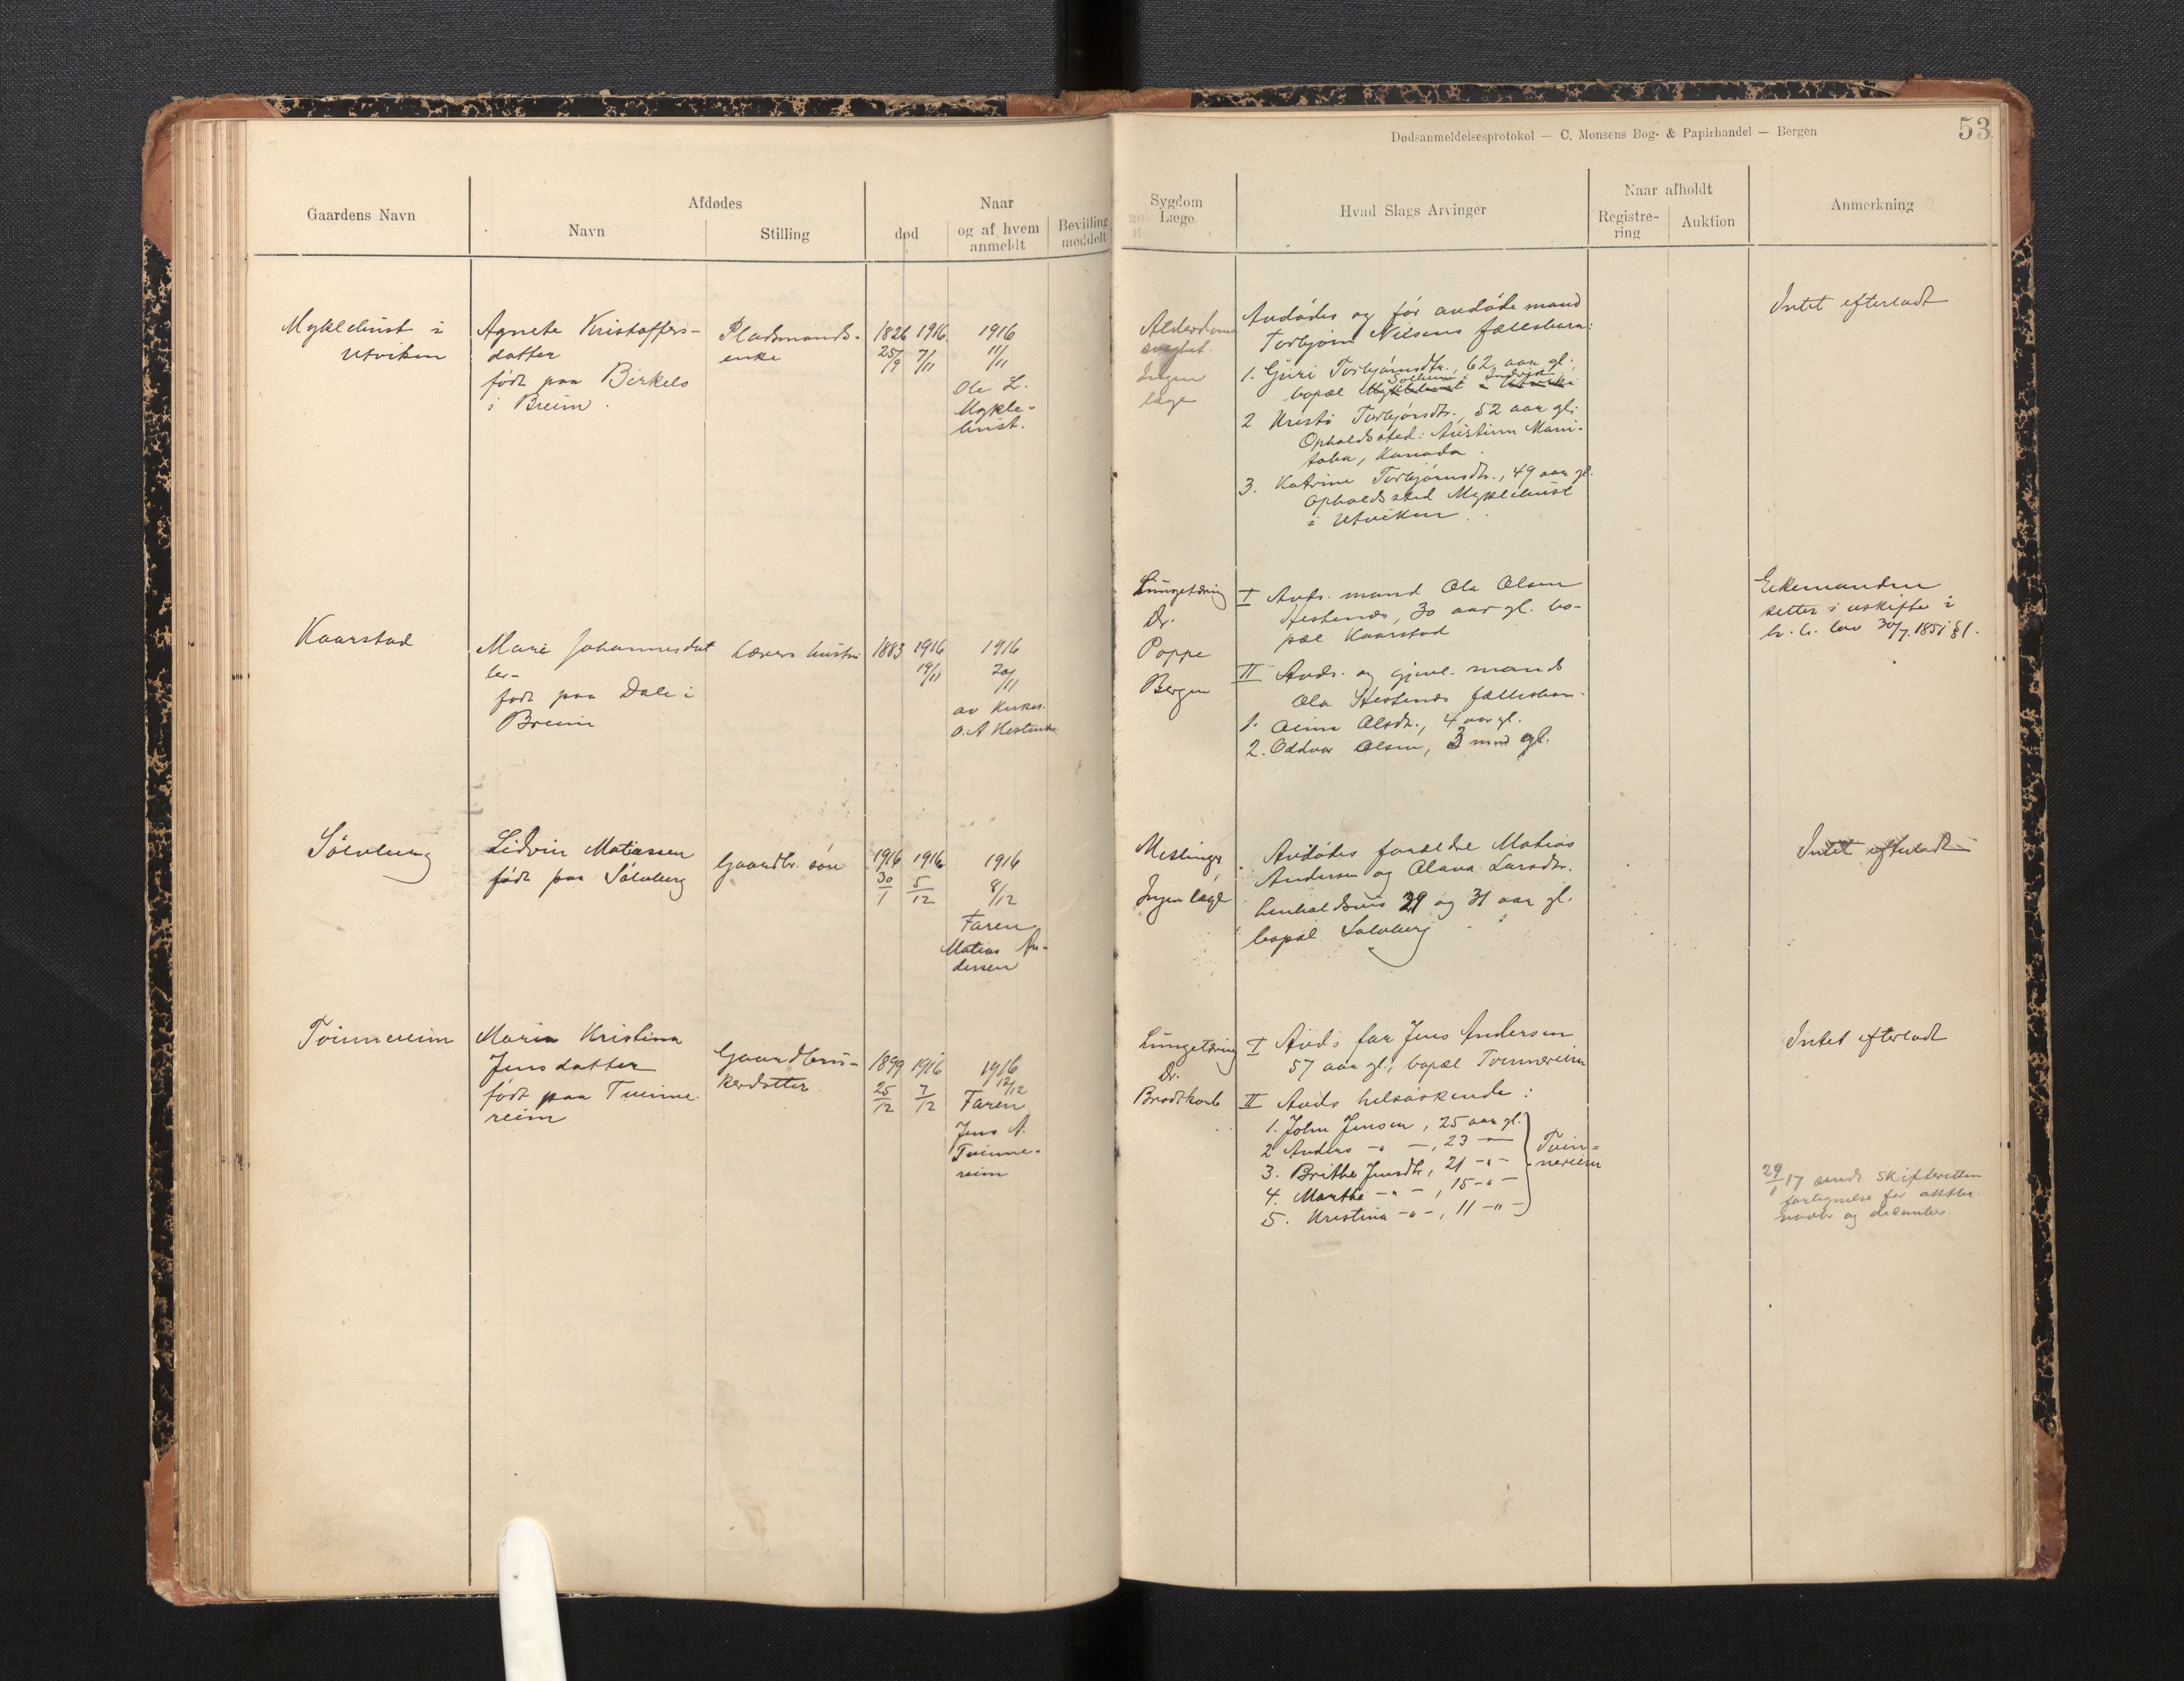 Dødsanmeldelsesprotokol — C. Monsens Bog- & Papirhandel — Bergen
53
Gaardens Navn
Afdødes
Navn
Stilling
Naar
død
og af hvem
anmeldt
Bevilling
meddelt
Sygdom
Læge
Hvad Slags Arvinger
Naar afholdt
Registre-
ring
Auktion
Anmerkning
Myklebust i
Utviken
Agnete Kristoffers-
datter
født paa Birkelo
i Breim.
Pladsmands-
enke
1826 1916
25/9 7/11
1916
11/11
Ole L.
Mykle-
bust.
Alderdoms
svaghet.
Ingen
læge
Avdødes og før avdøde mand
Torbjørn Nilsens fællesbarn:
1. Guri Torbjørnsdtr., 62 aar gl.,
Solheim i Indvik
bopæl Myklebust i Utviken
2 Kristi Torbjørnsdtr., 52 aar gl.
Opholdssted: Austinn Mani-
toba, Kanada.
3. Katrine Torbjørnsdtr., 49 aar gl.
Opholdssted Myklebust
i Utviken.
Intet efterladt
Kaarstad
Mari Johannesdat
ter-
født paa Dale i
Breim
Lærers hustru
1883 1916
19/11
1916
20/11
av Kirkes.
O. A Hestenes
Lungetæring
Dr.
Poppe
Bergen
I Avds. mand Ola Olsen
Hestenes, 30 aar gl. bo-
pæl Kaarstad
II Avds. og gjenl. mands
Ola Hestenes fællesbarn.
1. Olsdtr., 4 aar gl.
2. Oddvar Olsen, 3 mnd gl.
Enkemanden
sitter i uskifte i
h. h. lov 30/7 1851 § 1.
Sølvberg
Lidvin Matiassen
født paa Sølvberg
Gaardbr. søn
1916 1916
30/1 5/12
1916
8/12
Faren
Matias An-
dersen
Meslinger
Ingen læge
Avdødes forældre Matias
Andersen og Olava Larsdtr.
henholdsvis 29 og 31 aar gl.
bopæl Sølvberg
Intet efterladt
Tvinnereim
Maria Kristina
Jensdatter
født paa Tvinne-
reim
Gaardbru-
kerdatter
1899 1916
25/12 7/12
1916
12/12
Faren
Jens A.
Tvinne-
reim
Lungetæring
Dr.
Brodtkorb
I Avds far Jens Andersen
57 aar gl., bopæl Tvinnereim
II Avds helsøskende:
1. John Jensen, 25 aar gl.
2 Anders -"- -, 23 -"-
3. Brithe Jensdtr, 21 -"-
4. Marthe -"- -, 15 -"-
5. Kristina -"-, 11 -"-
Tvin-
nereim
Intet efterladt
29/1 17 sendt skifteretten
fortegnelse for oktbr.
novbr og desember.